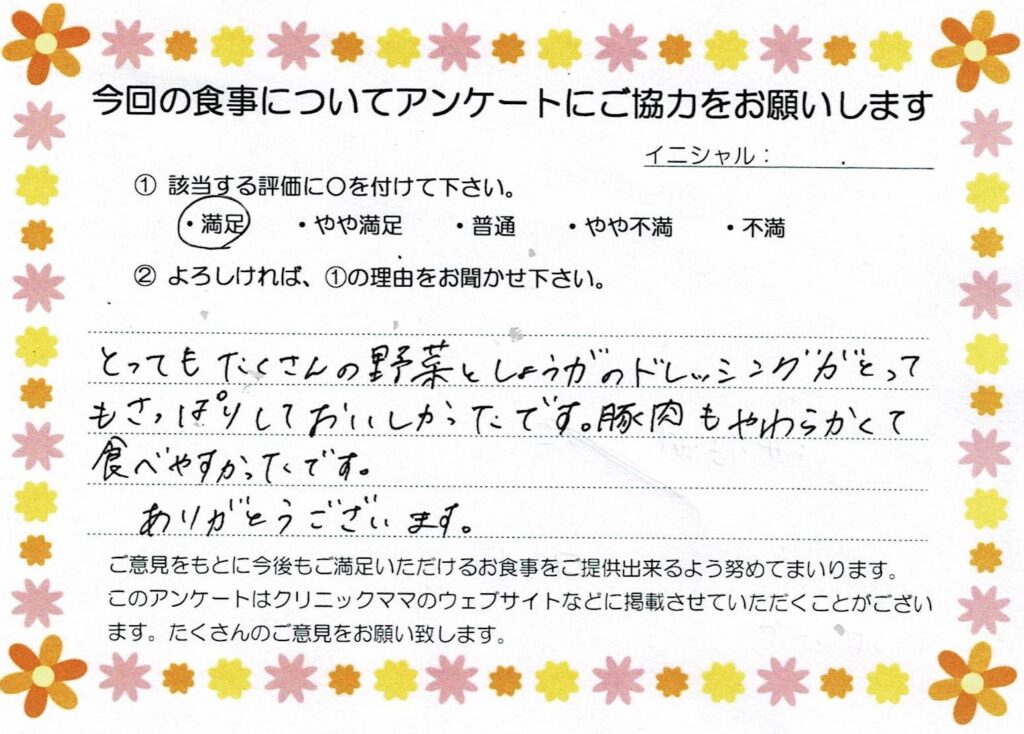 今回の食事についてアンケートにご協力をお願いします
イニシャル： .
① 該当する評価に〇を付けて下さい。
・満足 ・やや満足 ・普通 ・やや不満 ・不満
② よろしければ、①の理由をお聞かせ下さい。
とってもたくさんの野菜としょうがのドレッシングがとって
もさっぱりしておいしかったです。豚肉もやわらかくて
食べやすかったです。
ありがとうございます。
ご意見をもとに今後もご満足いただけるお食事をご提供出来るよう努めてまいります。
このアンケートはクリニックママのウェブサイトなどに掲載させていただくことがござい
ます。たくさんのご意見をお願い致します。